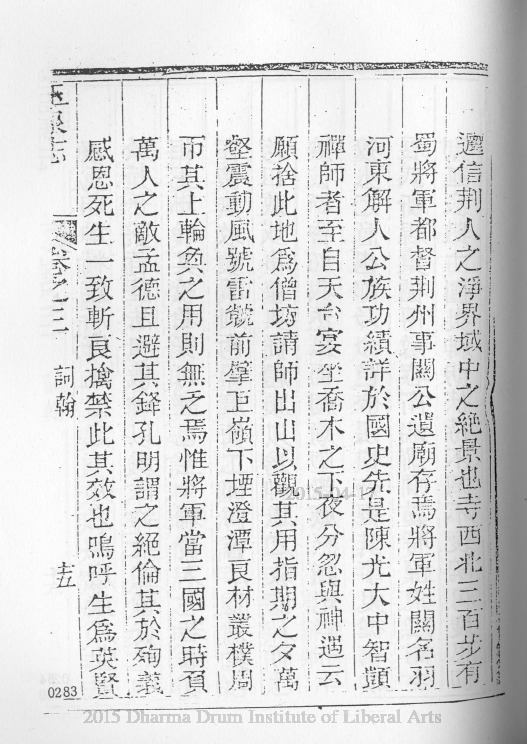 邇信荆人之淨界域中之絕景也寺西北三百步有
蜀將軍都督荆州事關公遺廟存焉將軍姓關名羽
河東解人公族功績詳於國史先是陳光大中智顗
禪師者至自天台宴坐喬木之下夜分忽與神遇云
願捨此地爲僧坊請師出山以觀其用指期之夕萬
壑震動風號雷虩前擘巨嶺下堙澄潭良材叢樸周
帀其上輪奐之用則無乏焉惟將軍當三國之時負
萬人之敵孟德且避其鋒孔明謂之絕倫其於殉義
感恩死生一致斬良擒禁此其效也嗚呼生爲英賢
玉泉志 卷之三 詞翰 十五
0283
2015-04-1
2015 Dharma Drum Institute of Liberal Arts